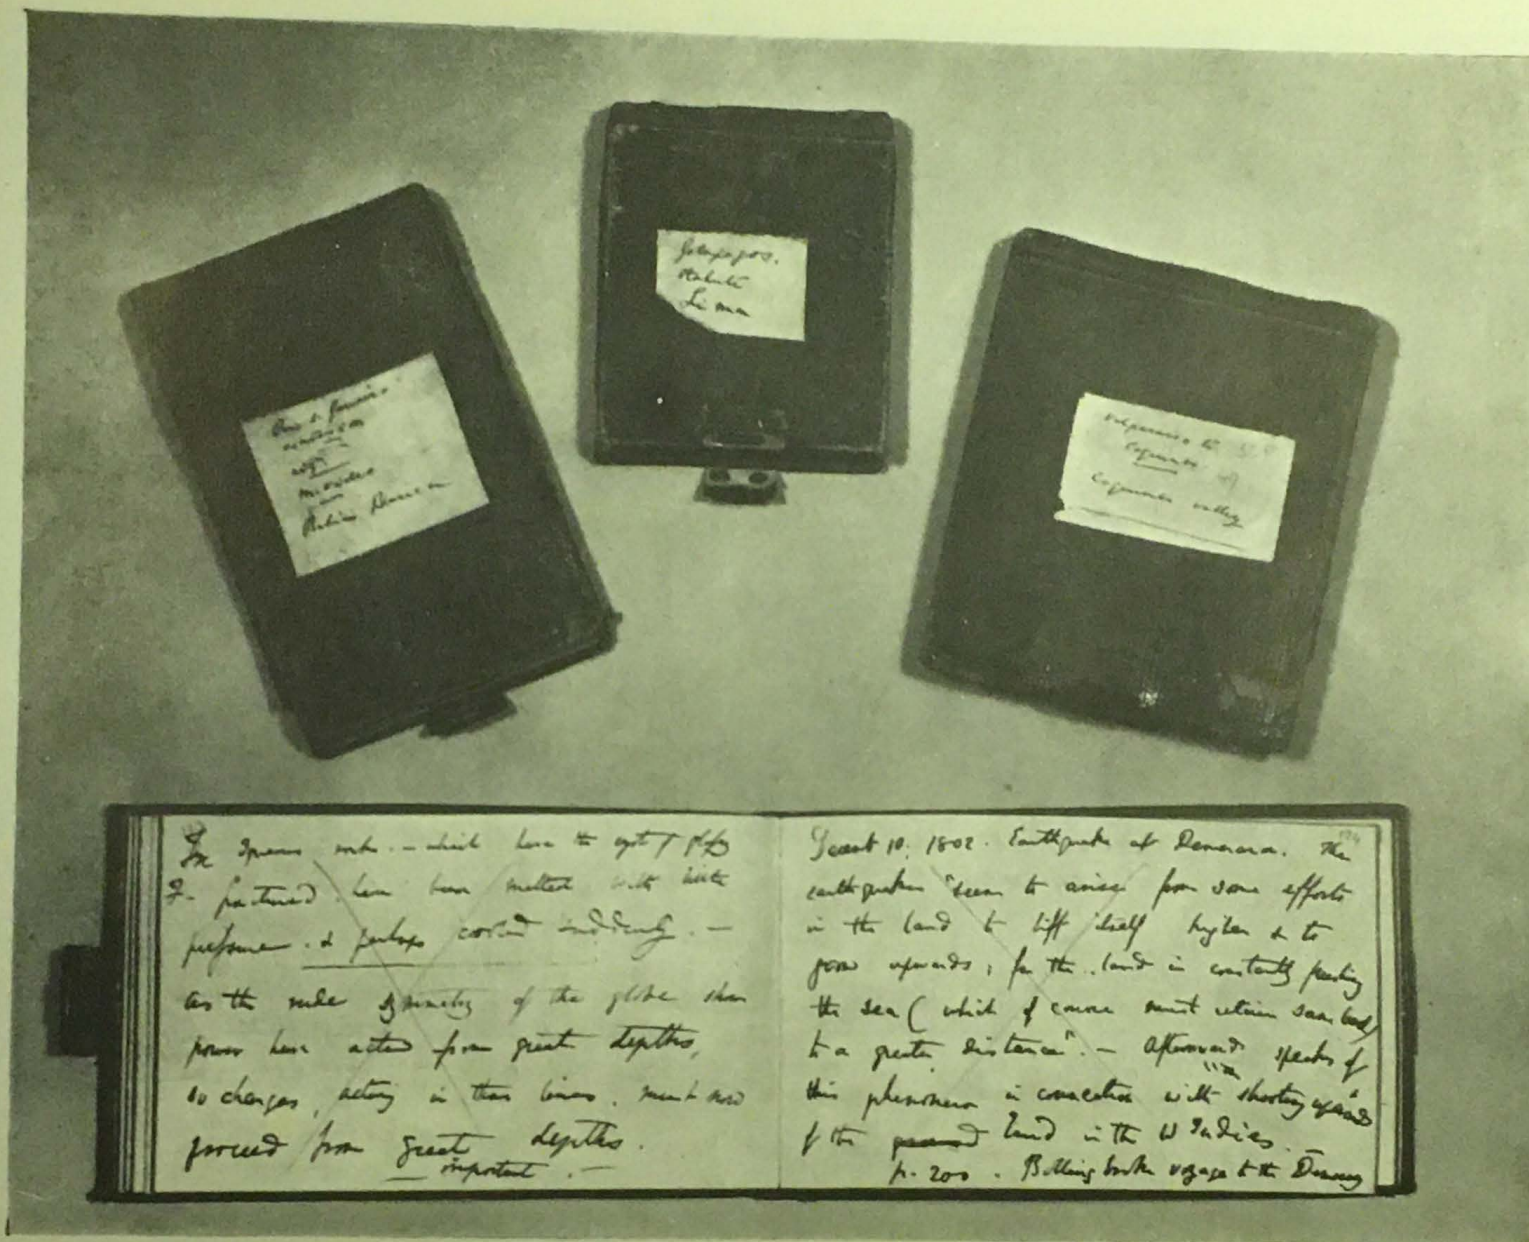 Galapagos.
Otaheite
Lima
Rio de Janeiro
excursion
city
M: Video
Bahia Blanca
Valparaiso to
Coquimbo
Coquimbo valley
In Igneous rocks. — which have the crysts of glassy
F. fractured. have been melted with little
pressure. & perhaps cooled suddenly. —
As the rude symmetry of the globe shows
powers have acted from great depths,
so changes, acting in those lines, must now
proceed from great depths.
important. —
10. 1802. Earthquake at Demerara. The
earthquakes "seem to arise from some efforts
in the land to lift itself higher & to
grow upwards; for the land is constantly pushing
the sea (which of course must retain same level)
to a greater distance". — Afterwards speaks of
this phenomenon in connection with "shooting upwards"
of the ground land in the W Indies. —
p. 200. Bollingbroke voyage to the Demerary